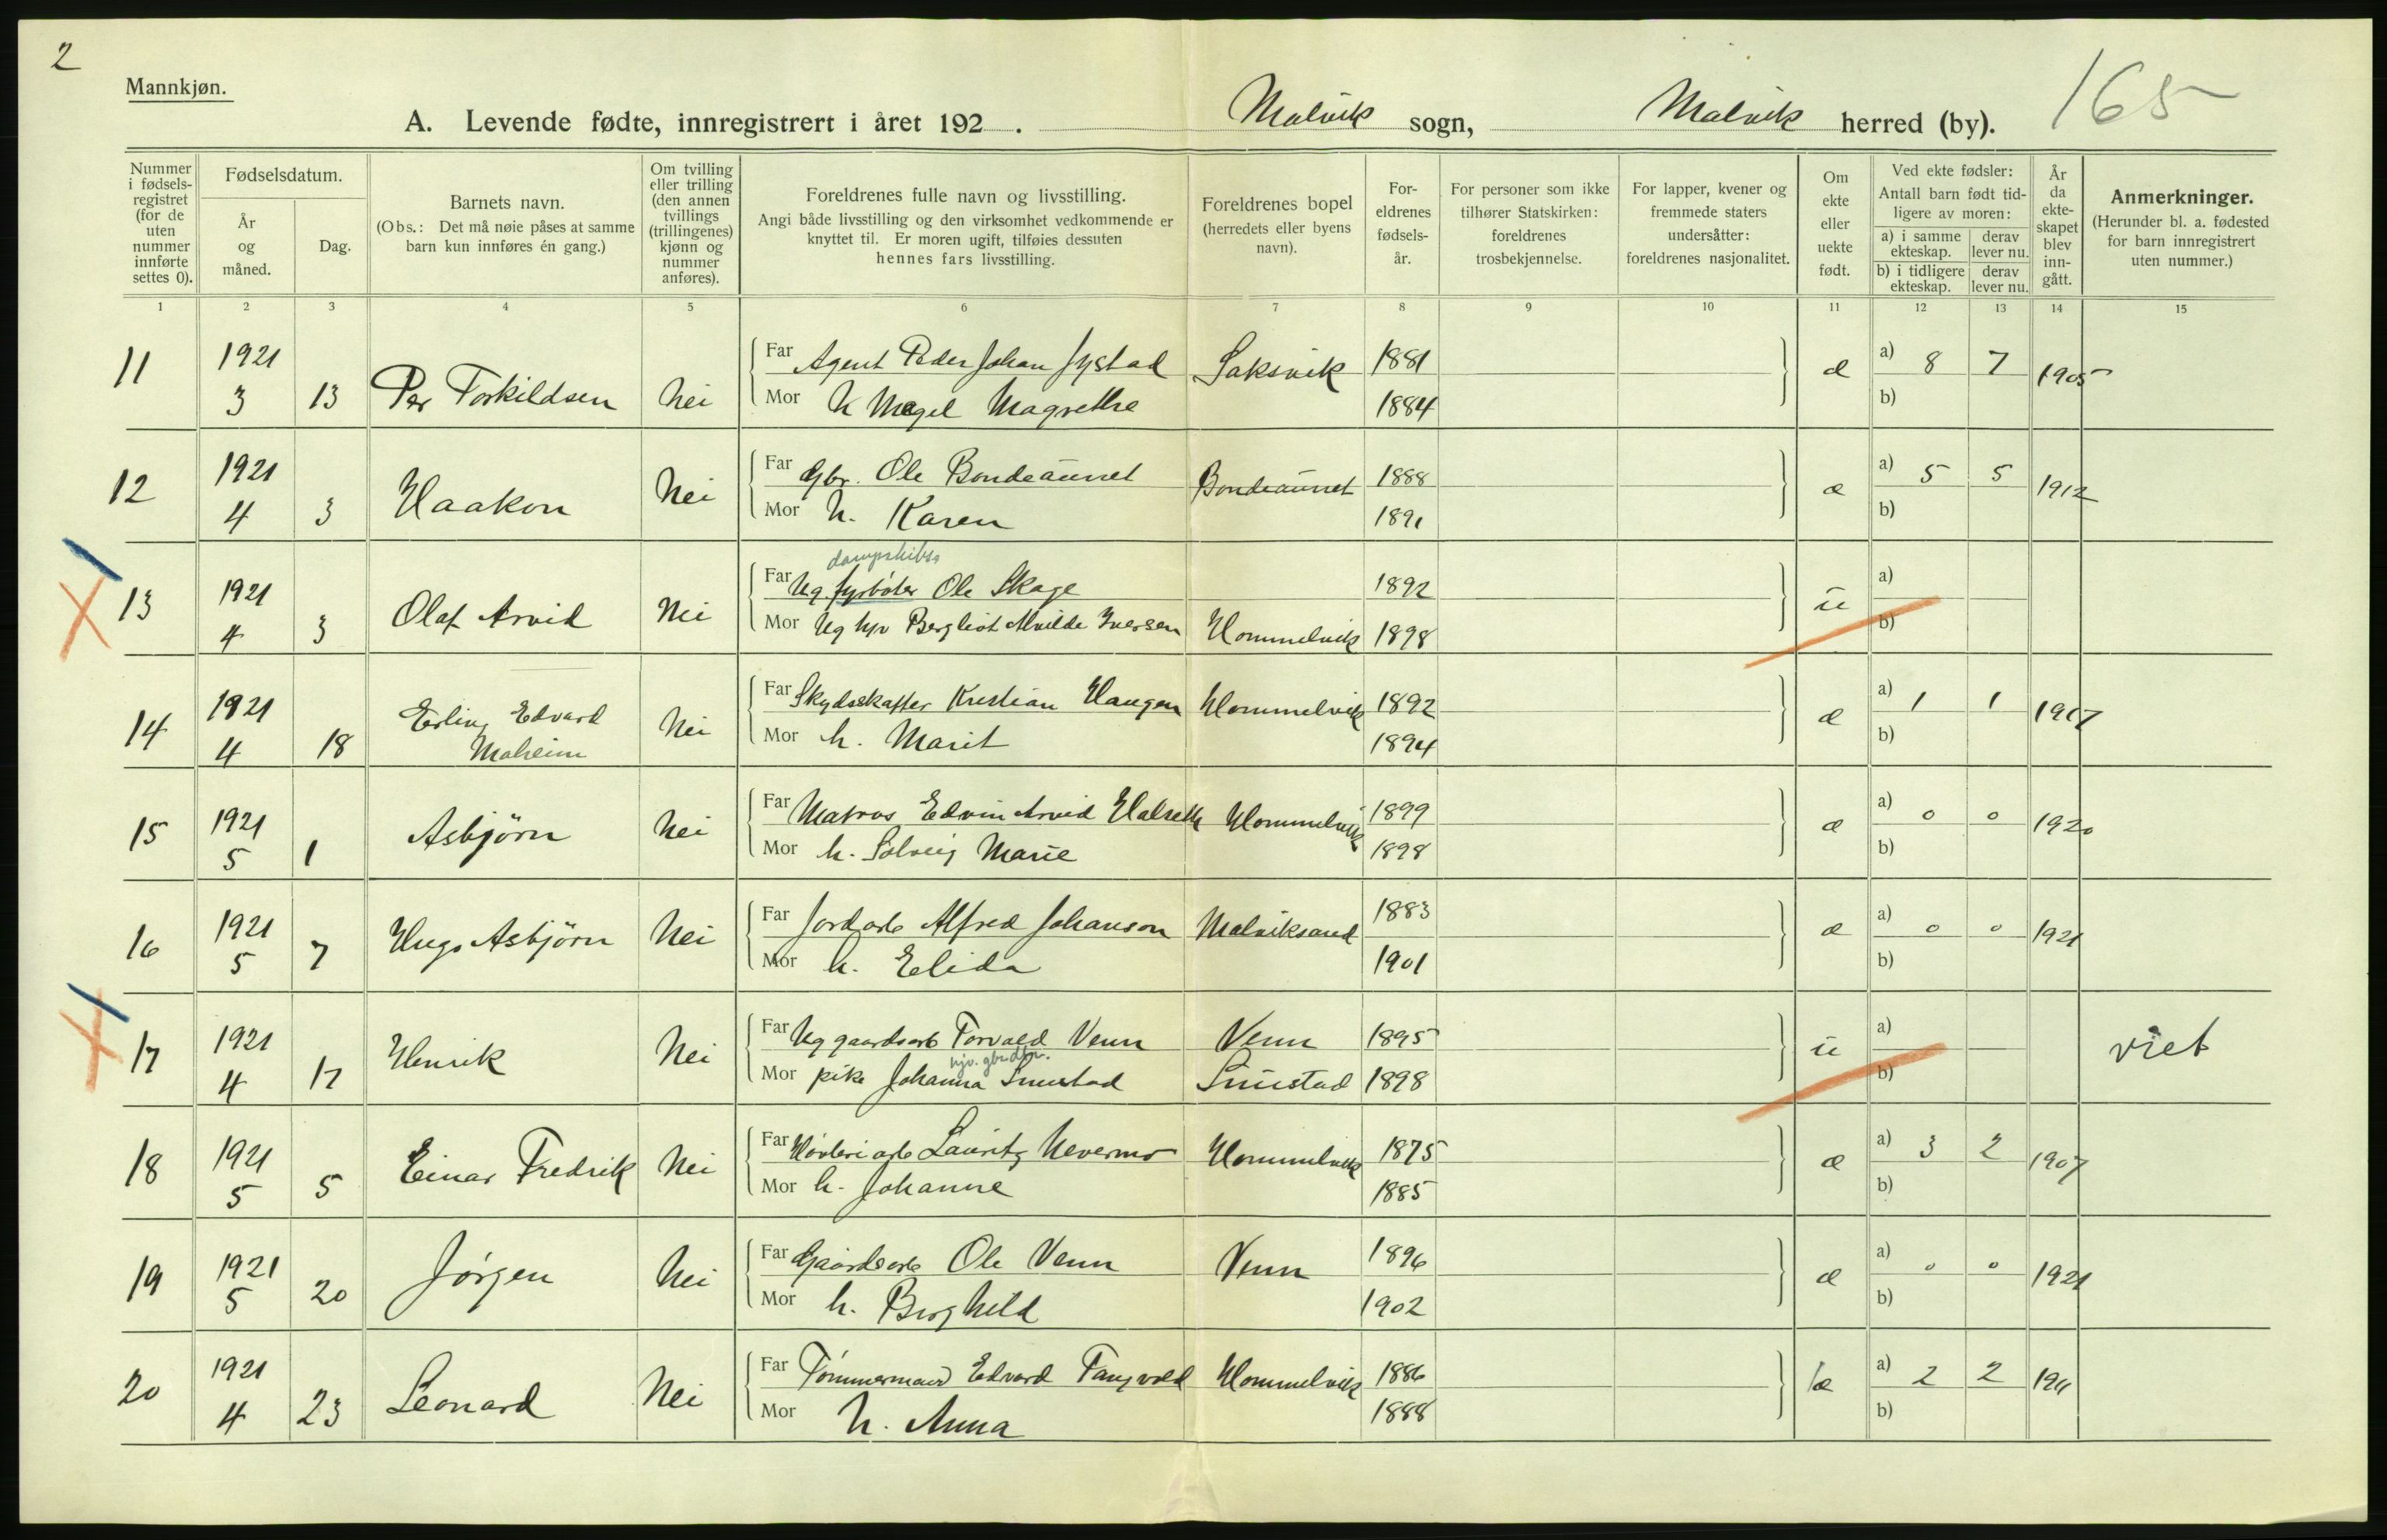 2
Mannkjøn.
165
A. Levende fødte, innregistrert i året 192 . Malvik sogn, Malvik herred (by).
Nummer i fødsels-registret (for de uten nummer innførte settes 0).
Fødselsdatum.
År og måned.
Dag.
Barnets navn.
(Obs.: Det må nøie påses at samme barn kun innføres én gang.)
Om tvilling eller trilling (den annen tvillings (trillingenes) kjønn og nummer anføres).
Foreldrenes fulle navn og livsstilling.
Angi både livsstilling og den virksomhet vedkommende er knyttet til. Er moren ugift, tilføies dessuten hennes fars livsstilling.
Foreldrenes bopel (herredets eller byens navn).
For-eldrenes fødsels-år.
For personer som ikke tilhører Statskirken: foreldrenes trosbekjennelse.
For lapper, kvener og fremmede staters undersåtter: foreldrenes nasjonalitet.
Om ekte eller uekte født.
Ved ekte fødsler:
Antall barn født tid-ligere av moren:
a) i samme ekteskap. derav lever nu.
b) i tidligere ekteskap. derav lever nu.
År da ekte-skapet blev inn-gått.
Anmerkninger.
(Herunder bl. a. fødested for barn innregistrert uten nummer.)
1 2 3 4 5 6 7 8 9 10 11 12 13 14 15
11 1921 Far Agent Peder Johan Systad Saksvik 1881 æ a) 8 7 1905
3 13 Per Torkildsen Nei Mor h Magel Magrethe 1884 b)
12 1921 Far Gbr. Ole Bondeaunet Bondeaunet 1888 æ a) 5 5 1912
4 3 Haakon Nei Mor h. Karen 1891 b)
dampskibs
13 1921 Far Ug. fyrbøter Ole Skage 1892 u a)
4 3 Olaf Arvid Nei Mor Ug hjv Bergliot Alvilde Iversen Hommelvik 1898 b)
14 1921 Erling Edvard Nei Far Skydsskaffer Kristian Haugen Hommelvik 1892 æ a) 1 1 1917
4 18 Maheim Mor h. Marit 1894 b)
15 1921 Far Matros Edvin Arvid Halseth Hommelvik 1899 æ a) 0 0 1920
5 1 Asbjörn Nei Mor h. Solveig Marie 1898 b)
16 1921 Far Jordarb Alfred Johanson Malviksand 1883 æ a) 0 0 1921
5 7 Hugo Asbjörn Nei Mor h. Elida 1901 b)
17 1921 Far Ug gaardsarb Torvald Venn Venn 1895 u a) viet
hjv. gbrdtr.
4 17 Henrik Nei Mor pike Johanna Smustad Smustad 1898 b)
18 1921 Far Høvleriarb Lauritz Nevermo Hommelvik 1875 æ a) 3 2 1907
5 5 Einar Fredrik Nei Mor h. Johanne 1885 b)
19 1921 Far Gaardsarb Ole Venn Venn 1896 æ a) 0 0 1921
5 20 Jørgen Nei Mor h. Borghild 1902 b)
20 1921 Far Tømmermand Edvard Tangvold Hommelvik 1886 æ a) 2 2 1911
4 23 Leonard Nei Mor h. Anna 1888 b)